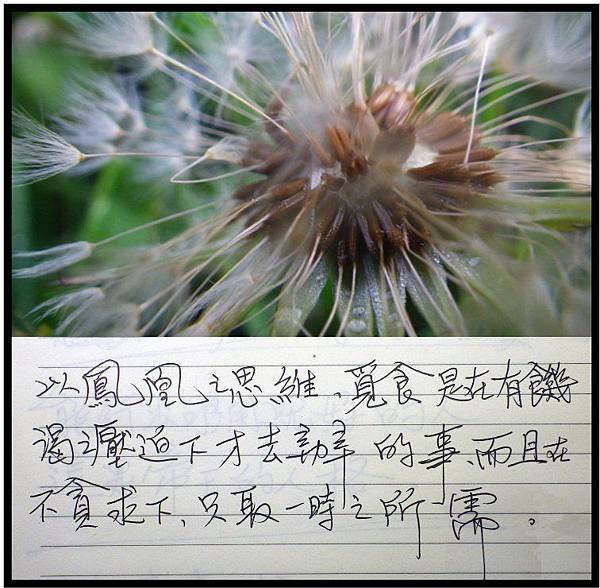 以鳳凰之思維、覓食是在有饑
渴之壓迫下才去 的事、而且在
不貪求下、只取一時之所需。